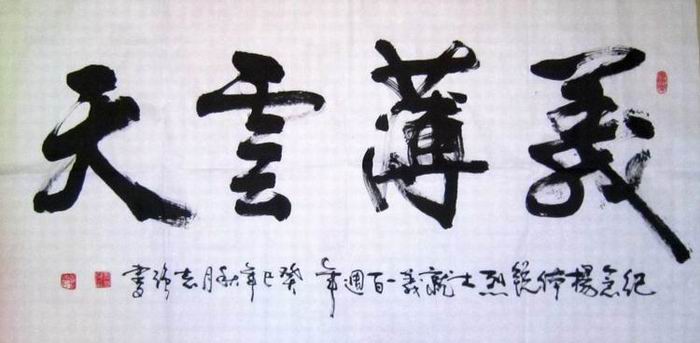 義薄雲天
紀念楊體銳烈士就義一百週年 癸巳年秋月志強書